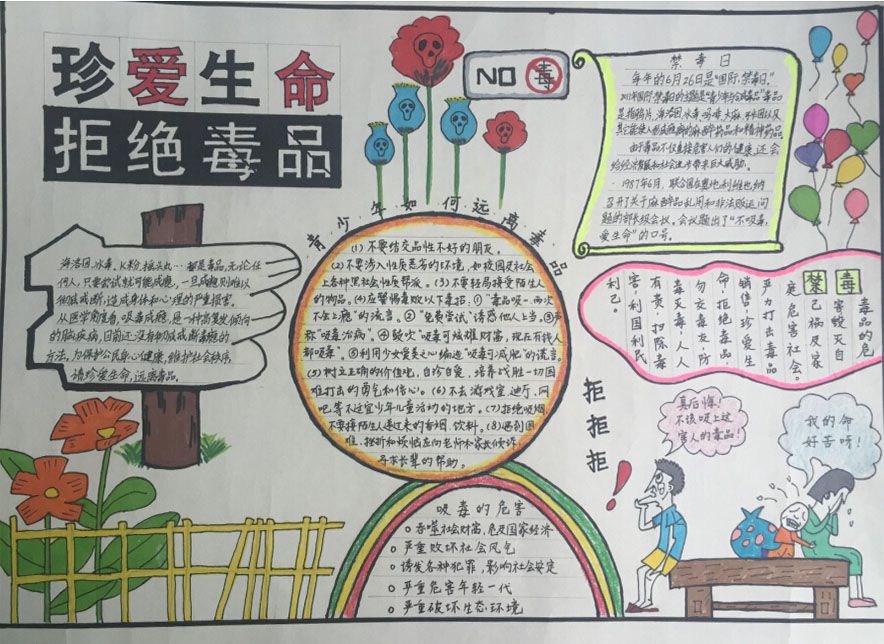 珍爱生命
拒绝毒品
NO毒
禁毒日
每年的6月26日是“国际禁毒日。”
是指鸦片,海洛因,冰毒,吗啡,大麻,可卡因以及
其它能使人形成瘾癖的麻醉药品和精神药品
由于毒品不仅直接危害人们的健康,还会
给经济发展和社会进步带来巨大威胁。
1987年6月,联合国在奥地利维也纳
召开了关于麻醉品乱用和非法贩运问
题的部长级会议。会议题出了“不吸毒,
爱生命”的口号。
青少年如何远离毒品
(1)不要结交品性不好的朋友。
(2)不要涉入性质恶劣的环境,如校园及社会
上各种黑社会性质帮派。(3)不要轻易接受陌生人
的物品。(4)应警惕毒贩以下毒招:①“毒品吸一两次
不会上瘾”的流言。②“免费尝试”诱惑他人上当。③声
称“吸毒治病”。④鼓吹“吸毒可炫耀财富,现在有钱人
都吸毒”。⑤利用少女爱美之心编造“吸毒可减肥”的谎言。
(5)树立正确的价值观,自珍自爱,培养战胜一切困
难打击的勇气和信心。(6)不去游戏室,迪厅,网
吧等不适宜少年儿童活动的地方。(7)拒绝吸烟,
不要接陌生人递过来的香烟,饮料。(8)遇到困
难,挫折和烦恼应向老师和家长倾诉,
寻求长辈的帮助。
海洛因,冰毒,K粉,摇头丸…都是毒品,无论任
何人,只要尝试就可能成瘾,一旦成瘾则难以
彻底戒断,造成身体和心理的严重损害。
从医学角度看,吸毒成瘾,是一种高复发倾向
的脑疾病,目前还没有彻底戒断毒瘾的
方法,为保护公民身心健康,维护社会秩序,
请珍爱生命,远离毒品。
禁毒
毒品的危
害毁灭自
己祸及家
庭危害社会。
严力打击毒品
销售,珍爱生
命,拒绝毒品,
勿交毒友,防
毒灭毒,人人
有责,扫除毒
害,利国利民
利己。
拒拒拒!
真后悔!
不该吸上这
害人的毒品!
我的命
好苦呀!
吸毒的危害
吞噬社会财富,危及国家经济
严重败坏社会风气
诱发各种犯罪,影响社会安定
严重危害年轻一代
严重破坏生态环境